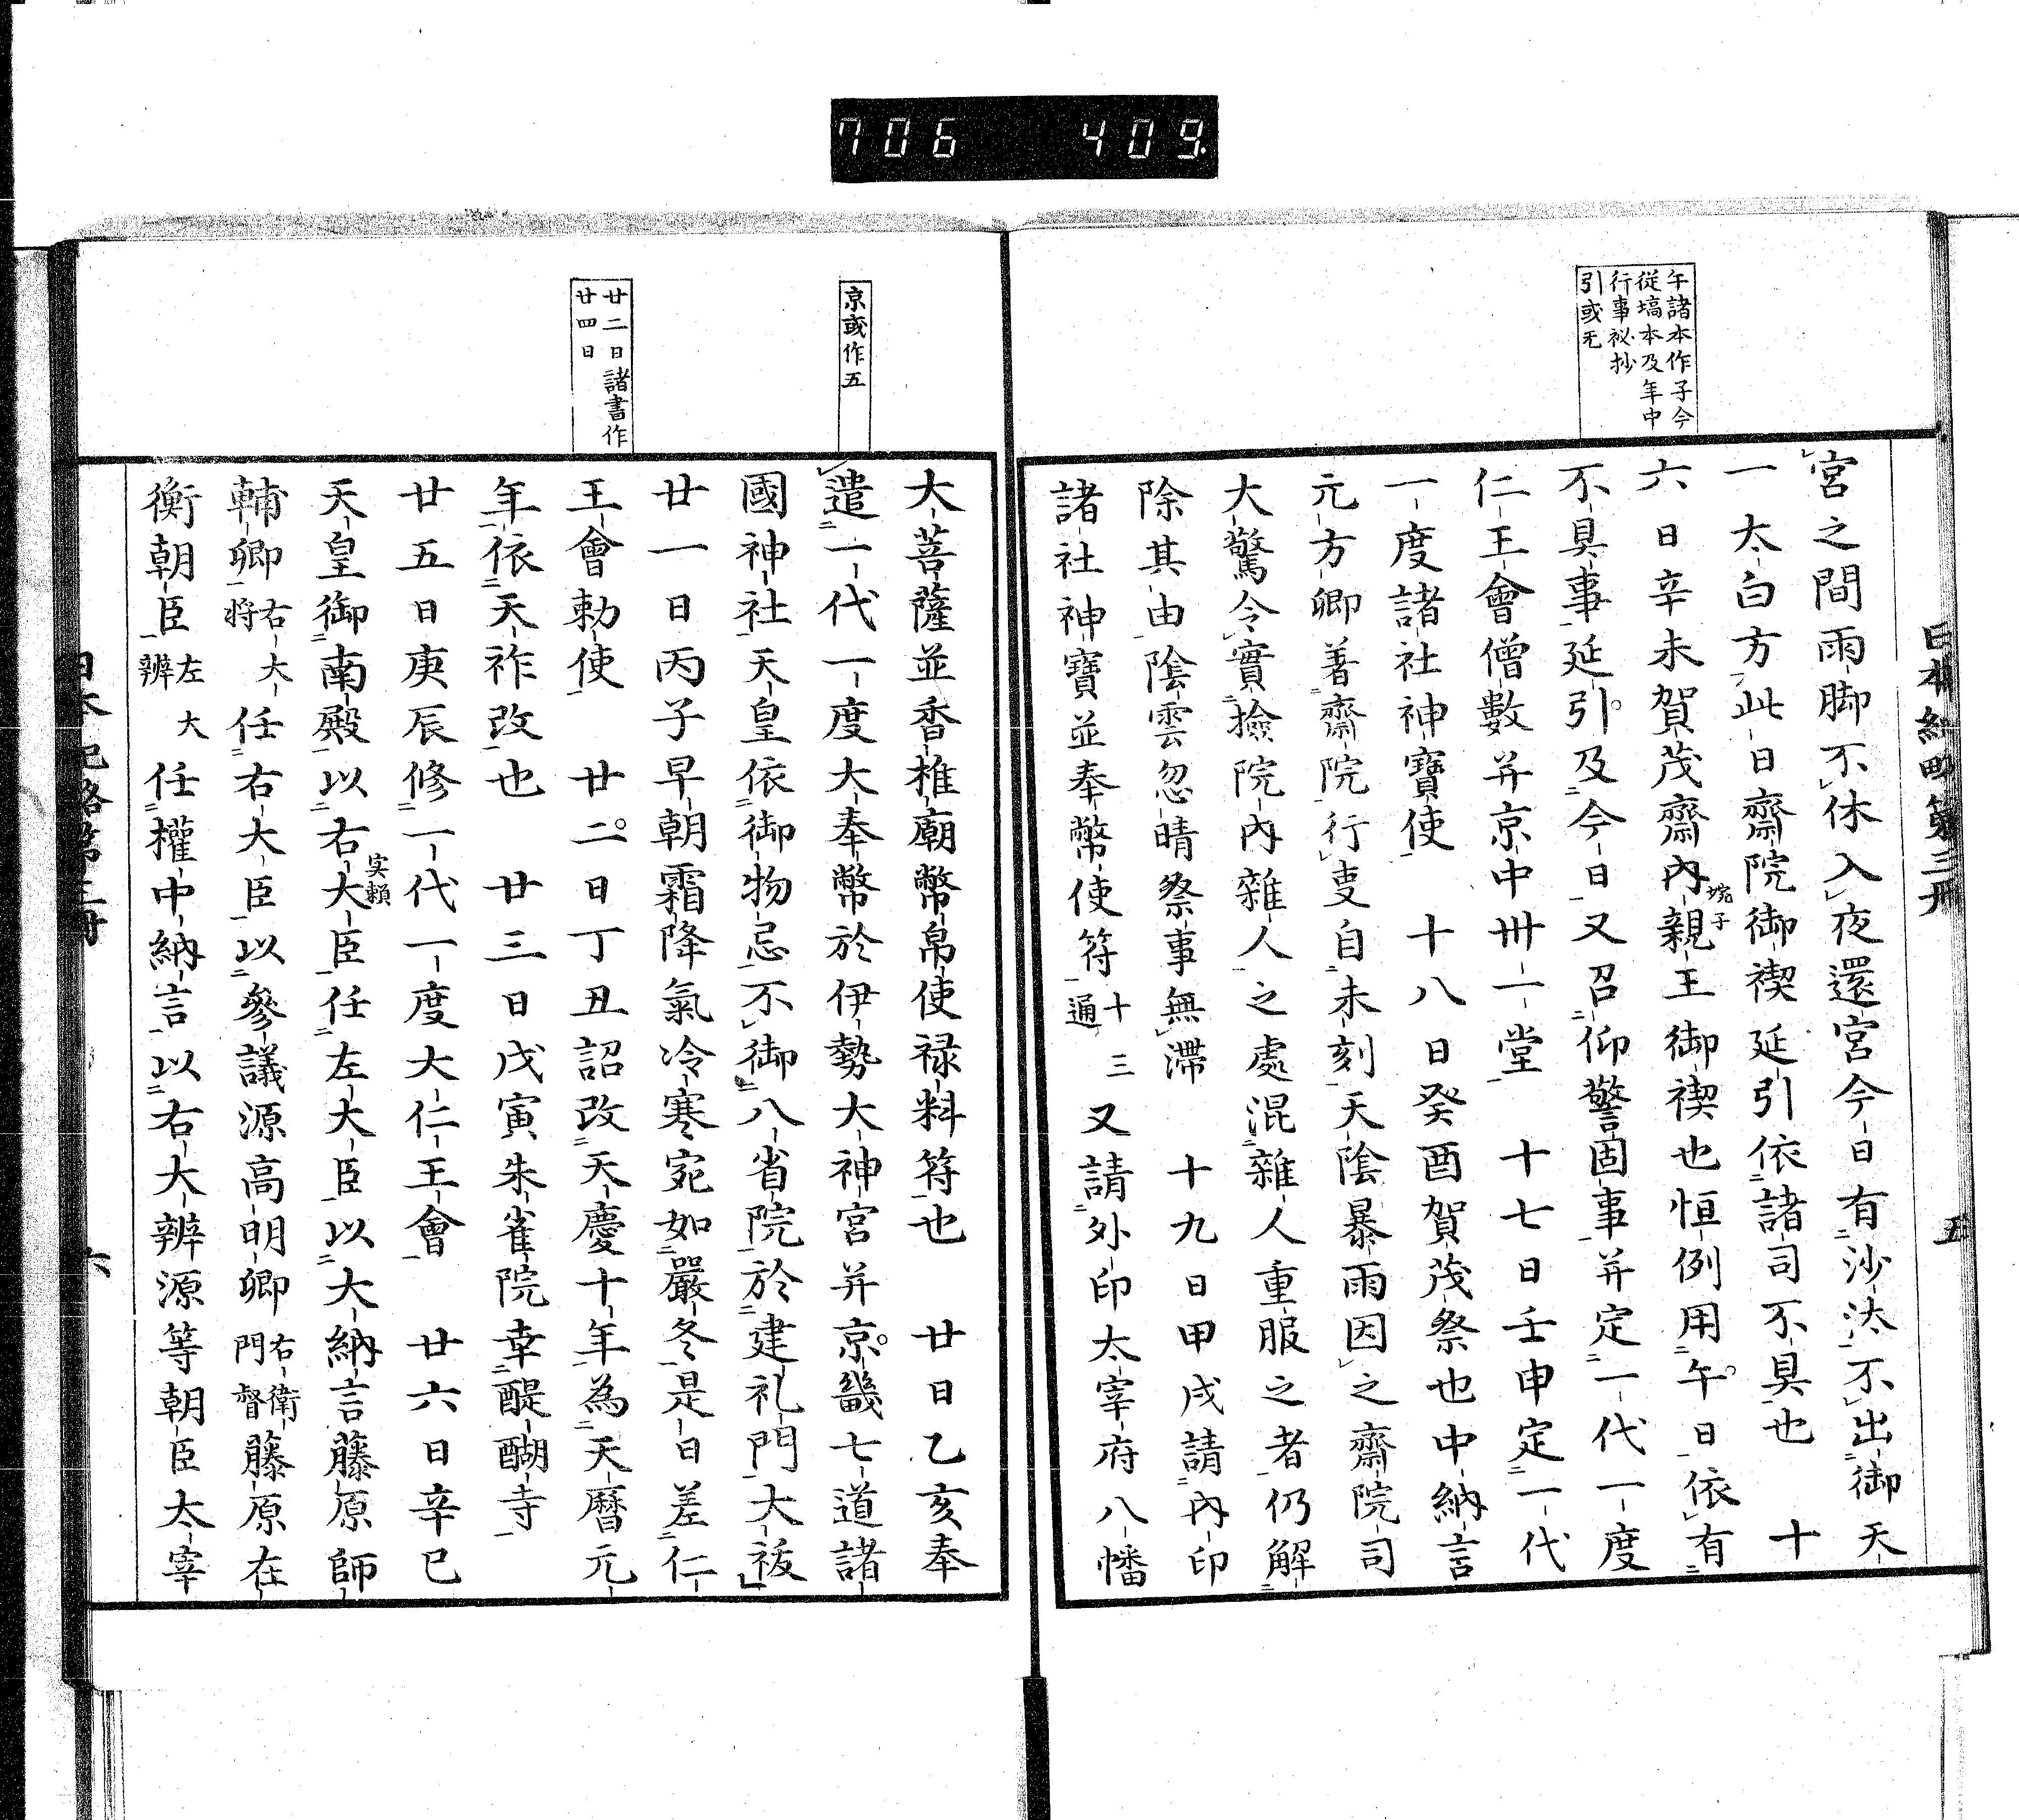 706 409.
日本紀畧第三冊 五
午諸本作子今
従塙本及年中
行事祕抄
引或无
宮之間雨脚不休入夜還宮今日有沙汰不出御天
一太白方此日齋院御禊延引依諸司不具也 十
六日辛未賀茂齋内親王御禊也恒例用午日依有
婉子
不具事延引及今日又召仰警固事并定一代一度
仁王會僧數并京中卅一堂 十七日壬申定一代
一度諸社神寶使 十八日癸酉賀茂祭也中納言
元方卿著齋院行事自未刻天陰暴雨因之齋院司
大驚令實撿院内雜人之處混雜人重服之者仍解
除其由陰雲忽晴祭事無滯 十九日甲戌請内印
諸社神寶並奉幣使符十三通 又請外印太宰府八幡
京或作五
廿二日諸書作
廿四日
大菩薩並香椎廟幣帛使禄料符也 廿日乙亥奉
遣一代一度大奉幣於伊勢大神宮并京畿七道諸
國神社天皇依御物忌不御八省院於建礼門大祓
廿一日丙子早朝霜降氣冷寒宛如嚴冬是日差仁
王會勅使 廿二日丁丑詔改天慶十年為天曆元
年依天祚改也 廿三日戊寅朱雀院幸醍醐寺
廿五日庚辰修一代一度大仁王會 廿六日辛巳
天皇御南殿以右大臣任左大臣以大納言藤原師
实頼
輔卿右大将任右大臣以參議源高明卿右衛門督藤原在
衡朝臣左大辨任權中納言以右大辨源等朝臣太宰
日本紀略第三冊 六